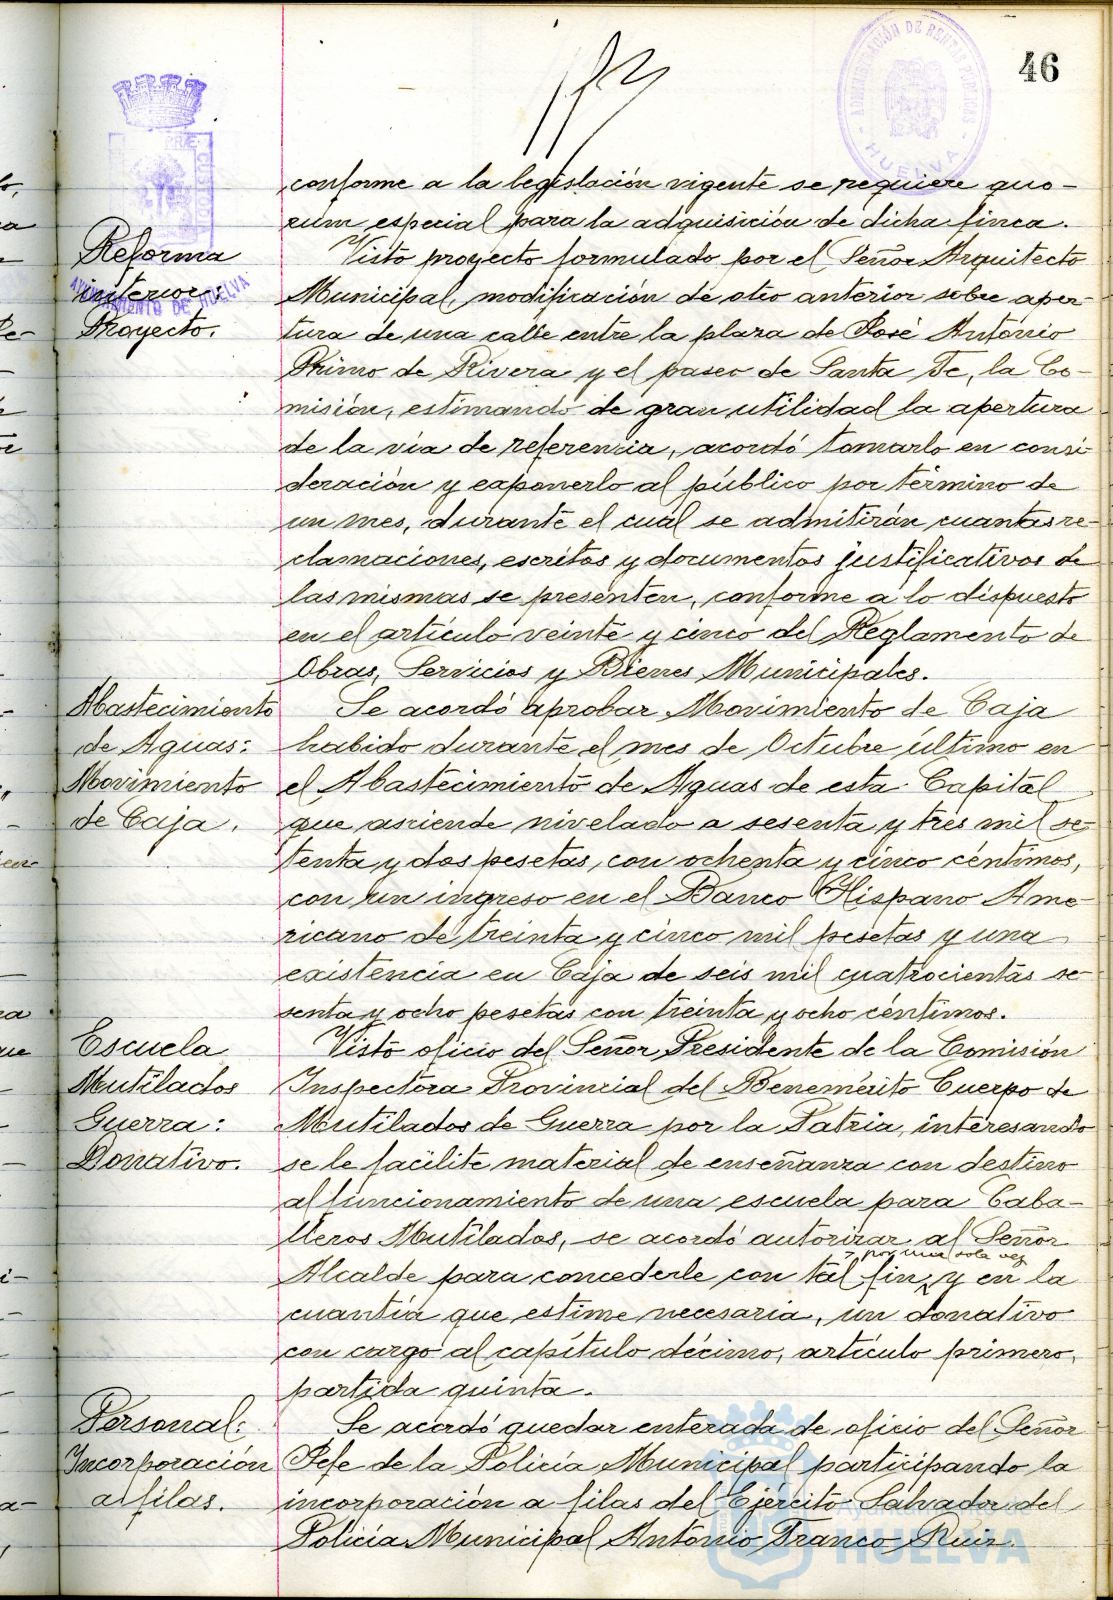 46
ADMINISTRACIÓN DE RENTAS PÚBLICAS
- HUELVA -
AYUNTAMIENTO DE HUELVA
conforme a la legislación vigente se requiere quo-
rum especial para la adquisición de dicha finca.
Reforma
interior:
Proyecto.
Visto proyecto formulado por el Señor Arquitecto
Municipal, modificación de otro anterior sobre aper-
tura de una calle entre la plaza de José Antonio
Primo de Rivera y el paseo de Santa Fe, la Co-
misión, estimando de gran utilidad la apertura
de la vía de referencia, acordó tomarlo en consi-
deración y exponerlo al público por término de
un mes, durante el cuál se admitirán cuantas re-
clamaciones, escritos y documentos justificativos de
las mismas se presenten, conforme a lo dispuesto
en el artículo veinte y cinco del Reglamento de
Obras, Servicios y Bienes Municipales.
Abastecimiento
de Aguas:
Movimiento
de Caja.
Se acordó aprobar Movimiento de Caja
habido durante el mes de Octubre último en
el Abastecimiento de Aguas de esta Capital
que asciende nivelado a sesenta y tres mil se-
tenta y dos pesetas, con ochenta y cinco céntimos,
con un ingreso en el Banco Hispano Ame-
ricano de treinta y cinco mil pesetas y una
existencia en Caja de seis mil cuatrocientas se-
senta y ocho pesetas con treinta y ocho céntimos.
Escuela
Mutilados
Guerra:
Donativo.
Visto oficio del Señor Presidente de la Comisión
Inspectora Provincial del Benemérito Cuerpo de
Mutilados de Guerra por la Patria, interesando
se le facilite material de enseñanza con destino
al funcionamiento de una escuela para Caba-
lleros Mutilados, se acordó autorizar al Señor
por una sola vez
Alcalde para concederle con tal fin, y en la
cuantía que estime necesaria, un donativo
con cargo al capítulo décimo, artículo primero,
partida quinta.
Personal:
Incorporación
a filas.
Se acordó quedar enterada de oficio del Señor
Jefe de la Policía Municipal participando la
incorporación a filas del Ejército Salvador del
Policía Municipal Antonio Franco Ruiz.
Ayuntamiento de
HUELVA